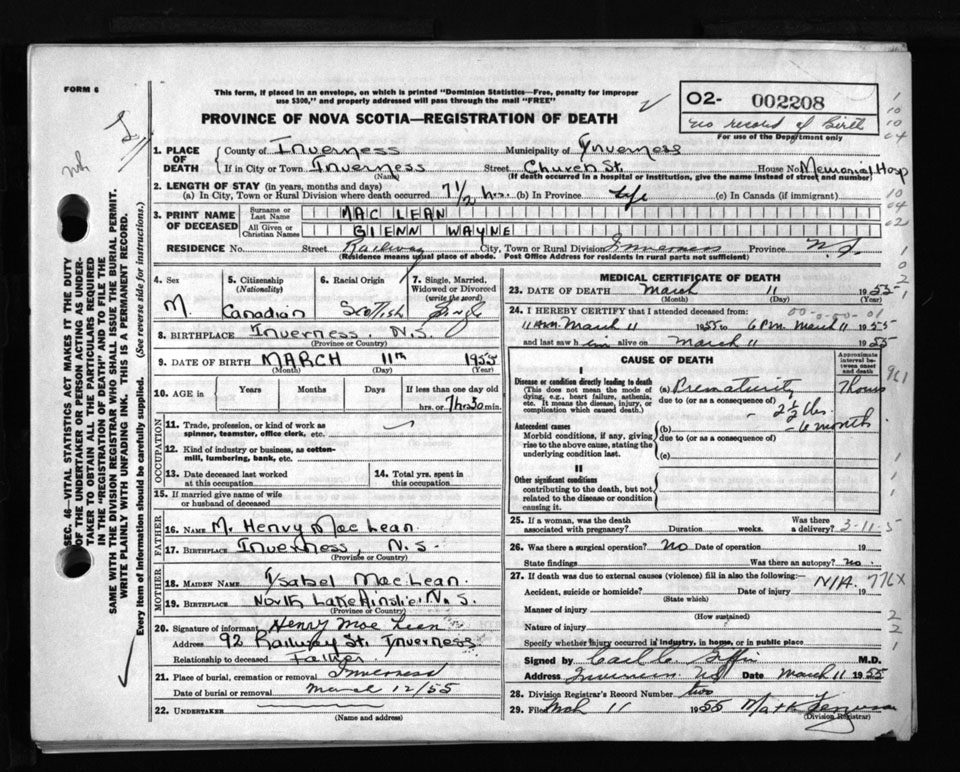 FORM 6
This form, if placed in an envelope, on which is printed "Dominion Statistics—Free, penalty for improper
use $300," and properly addressed will pass through the mail "FREE"
PROVINCE OF NOVA SCOTIA—REGISTRATION OF DEATH
02- 002208
no record of birth
For use of the Department only
SEC. 46—VITAL STATISTICS ACT MAKES IT THE DUTY
OF THE UNDERTAKER OR PERSON ACTING AS UNDER-
TAKER TO OBTAIN ALL THE PARTICULARS REQUIRED
IN THE "REGISTRATION OF DEATH" AND TO FILE THE
SAME WITH THE DIVISION REGISTRAR WHO SHALL ISSUE THE BURIAL PERMIT.
WRITE PLAINLY WITH UNFADING INK. THIS IS A PERMANENT RECORD.
Every item of information should be carefully supplied. (See reverse side for instructions.)
1. PLACE OF DEATH
County of Inverness Municipality of Inverness
If in City or Town Inverness Street Church St. House No. Memorial Hosp
(Name) (If death occurred in a hospital or institution, give the name instead of street and number)
2. LENGTH OF STAY (in years, months and days)
(a) In City, Town or Rural Division where death occurred 7 1/2 hrs. (b) In Province Life (c) In Canada (if immigrant)
3. PRINT NAME OF DECEASED
Surname or Last Name MAC LEAN
All Given or Christian Names GlENN WAYNE
RESIDENCE No. Street Railway City, Town or Rural Division Inverness Province N.S.
(Residence means usual place of abode. Post Office Address for residents in rural parts not sufficient)
4. Sex M.
5. Citizenship (Nationality) Canadian
6. Racial Origin Scottish
7. Single, Married, Widowed or Divorced (write the word) Single
8. BIRTHPLACE Inverness, N.S.
(Province or Country)
9. DATE OF BIRTH MARCH 11th 1955
(Month) (Day) (Year)
10. AGE in Years Months Days If less than one day old
hrs. or 7hrs30 min.
OCCUPATION
11. Trade, profession, or kind of work as
spinner, teamster, office clerk, etc.
12. Kind of industry or business, as cotton-
mill, lumbering, bank, etc.
13. Date deceased last worked
at this occupation
14. Total yrs. spent in
this occupation
15. If married give name of wife
or husband of deceased
FATHER
16. NAME M. Henry Mac Lean.
17. BIRTHPLACE Inverness, N.S.
(Province or Country)
MOTHER
18. MAIDEN NAME Ysabel MacLean.
19. BIRTHPLACE North Lake Ainslie N.S.
(Province or Country)
20. Signature of informant Henry Mac Lean
Address 92 Railway St. Inverness
Relationship to deceased Father.
21. Place of burial, cremation or removal Inverness
Date of burial or removal March 12/55
22. UNDERTAKER
(Name and address)
MEDICAL CERTIFICATE OF DEATH
23. DATE OF DEATH March 11 1955
(Month) (Day) (Year)
24. I HEREBY CERTIFY that I attended deceased from:
11 A.M. March 11 1955 to 6 P.M. March 11 1955
and last saw h im alive on March 11 1955
CAUSE OF DEATH
Approximate interval between onset and death
I
Disease or condition directly leading to death
(This does not mean the mode of
dying, e.g., heart failure, asthenia,
etc. It means the disease, injury, or
complication which caused death.)
(a) Prematurity 7 hours
due to (or as a consequence of)
- 2 1/2 lbs.
Antecedent causes
Morbid conditions, if any, giving
rise to the above cause, stating the
underlying condition last.
(b) - 6 months
due to (or as a consequence of)
(c)
II
Other significant conditions
contributing to the death, but not
related to the disease or condition
causing it.
961
25. If a woman, was the death
associated with pregnancy? Duration weeks. Was there
a delivery? 3-11-5
26. Was there a surgical operation? No Date of operation 19
State findings Was there an autopsy? No.
27. If death was due to external causes (violence) fill in also the following:— N/A. 776X
Accident, suicide or homicide? Date of injury 19
(State which)
Manner of injury
(How sustained)
Nature of injury
Specify whether injury occurred in industry, in home, or in public place
Signed by M.D.
Address Inverness NS Date March 11 1955
28. Division Registrar's Record Number two
29. Filed Mch 11 1955 Ferguson
(Division Registrar)